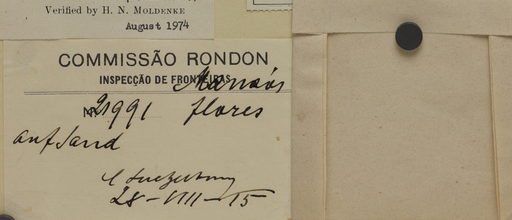 Verified by H. N. MOLDENKE
August 1974
COMMISSÃO RONDON
INSPECÇÃO DE FRONTEIRAS
Manáos
Nr. 21991 flores
auf Sand
28-VIII-15